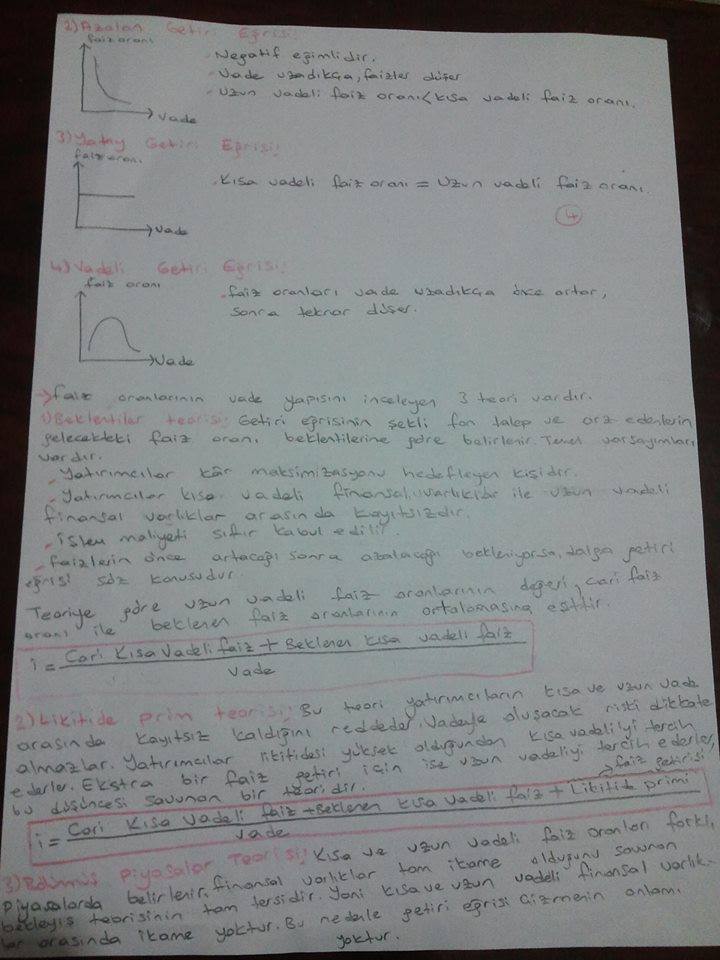 2) Azalan Getiri Eğrisi!
faiz oranı
Vade
. Negatif eğimlidir.
. Vade uzadıkça, faizler düşer
. Uzun vadeli faiz oranı < kısa vadeli faiz oranı.
3) Yatay Getiri Eğrisi!
faiz oranı
Vade
. Kısa vadeli faiz oranı = Uzun vadeli faiz oranı.
4
4) Vadeli Getiri Eğrisi!
faiz oranı
Vade
. faiz oranları vade uzadıkça önce artar,
sonra tekrar düşer.
→ faiz oranlarının vade yapısını inceleyen 3 teori vardır.
1) Beklentiler teorisi! Getiri eğrisinin şekli fon talep ve arz edenlerin
gelecekteki faiz oranı beklentilerine göre belirlenir. Temel varsayımları
vardır.
. Yatırımcılar kâr maksimizasyonu hedefleyen kişidir.
. Yatırımcılar kısa vadeli finansal varlıklar ile uzun vadeli
finansal varlıklar arasında kayıtsızdır.
. işlem maliyeti sıfır kabul edilir.
. faizlerin önce artacağı sonra azalacağı bekleniyorsa, dalga getiri
eğrisi söz konusudur.
Teoriye göre uzun vadeli faiz oranlarının değeri, cari faiz
oranı ile beklenen faiz oranlarının ortalamasına eşittir.
i = Cari Kısa Vadeli faiz + Beklenen kısa vadeli faiz
Vade
2) Likitide prim teorisi! Bu teori yatırımcıların kısa ve uzun vade
arasında kayıtsız kaldığını reddeder. Vadeyle oluşacak riski dikkate
almazlar. Yatırımcılar likitidesi yüksek olduğundan kısa vadeliyi tercih
ederler. Ekstra bir faiz getiri için ise uzun vadeliyi tercih ederler,
bu düşüncesi savunan bir teoridir.
→ faiz getirisi
i = Cari Kısa Vadeli faiz + Beklenen kısa vadeli faiz + Likitide primi
Vade
3) Bölünmüş Piyasalar Teorisi! Kısa ve uzun vadeli faiz oranları farklı
piyasalarda belirlenir. finansal varlıklar tam ikame olduğunu savunan
bekleyiş teorisinin tam tersidir. Yani kısa ve uzun vadeli finansal varlık-
lar arasında ikame yoktur. Bu nedenle getiri eğrisi çizmenin anlamı
yoktur.